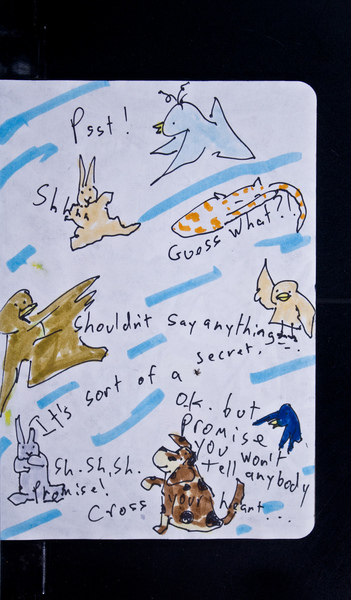 Psst!
Shhhh
Guess What?!
Shouldn't say anything
secret.
It's sort of a *
O.K. but
Promise
you won't
tell anybody
Sh.Sh.Sh.
Promise!
Cross your heart...